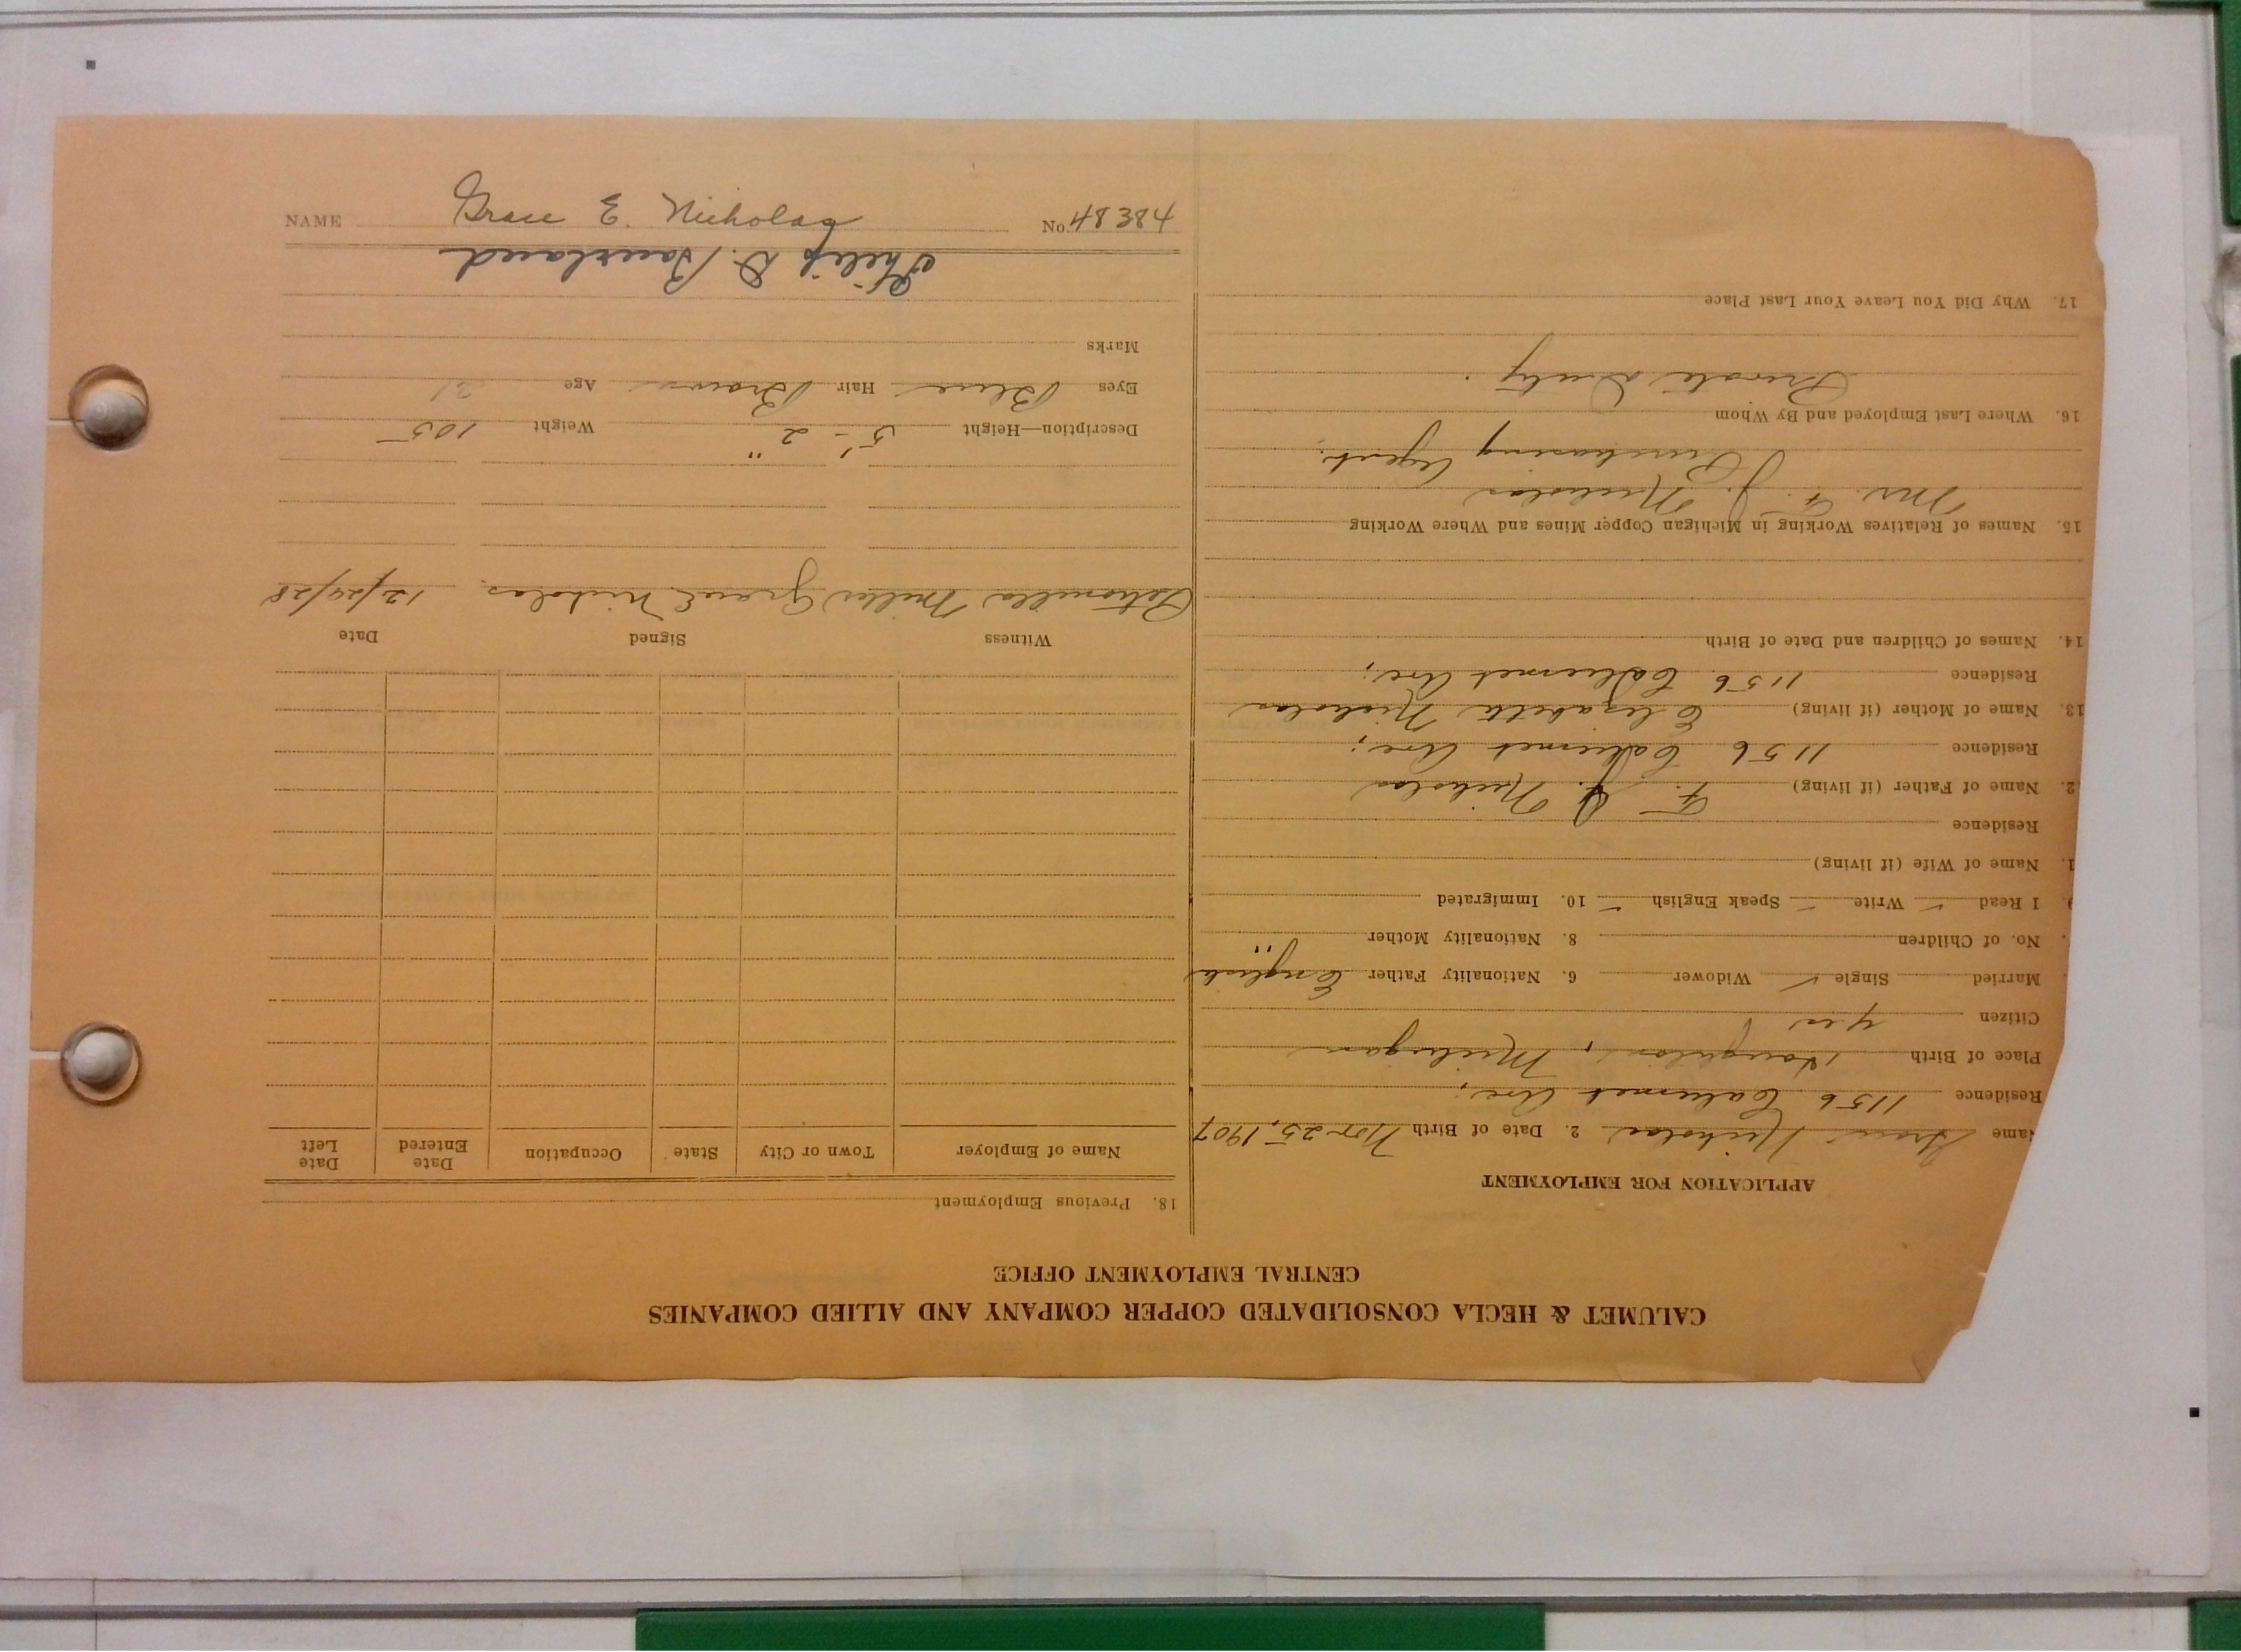 CALUMET & HECLA CONSOLIDATED COPPER COMPANY AND ALLIED COMPANIES
CENTRAL EMPLOYMENT OFFICE
APPLICATION FOR EMPLOYMENT
Name Grace Nicholas 2. Date of Birth Nov-25, 1907
Residence 1156 Calumet Ave;
Place of Birth Houghton, Michigan
Citizen yes
Married Single ✓ Widower 6. Nationality Father English
No. of Children 8. Nationality Mother "
9. I Read ✓ Write ✓ Speak English ✓ 10. Immigrated
1. Name of Wife (if living)
Residence
2. Name of Father (if living) F. J. Nicholas
Residence 1156 Calumet Ave;
13. Name of Mother (if living) Elizabeth Nicholas
Residence 1156 Calumet Ave;
14. Names of Children and Date of Birth
15. Names of Relatives Working in Michigan Copper Mines and Where Working
Mr. F. J. Nicholas
Purchasing Agent.
16. Where Last Employed and By Whom
Private Duty.
17. Why Did You Leave Your Last Place
18. Previous Employment
Name of Employer Town or City State Occupation Date Entered Date Left
Witness Signed Date
Petronella Miller Grace Nicholas. 12/29/28
Description—Height 5'-2" Weight 105
Eyes Blue Hair Brown Age 21
Marks
Philip D. Bourland
NAME Grace E. Nicholas No. 48384